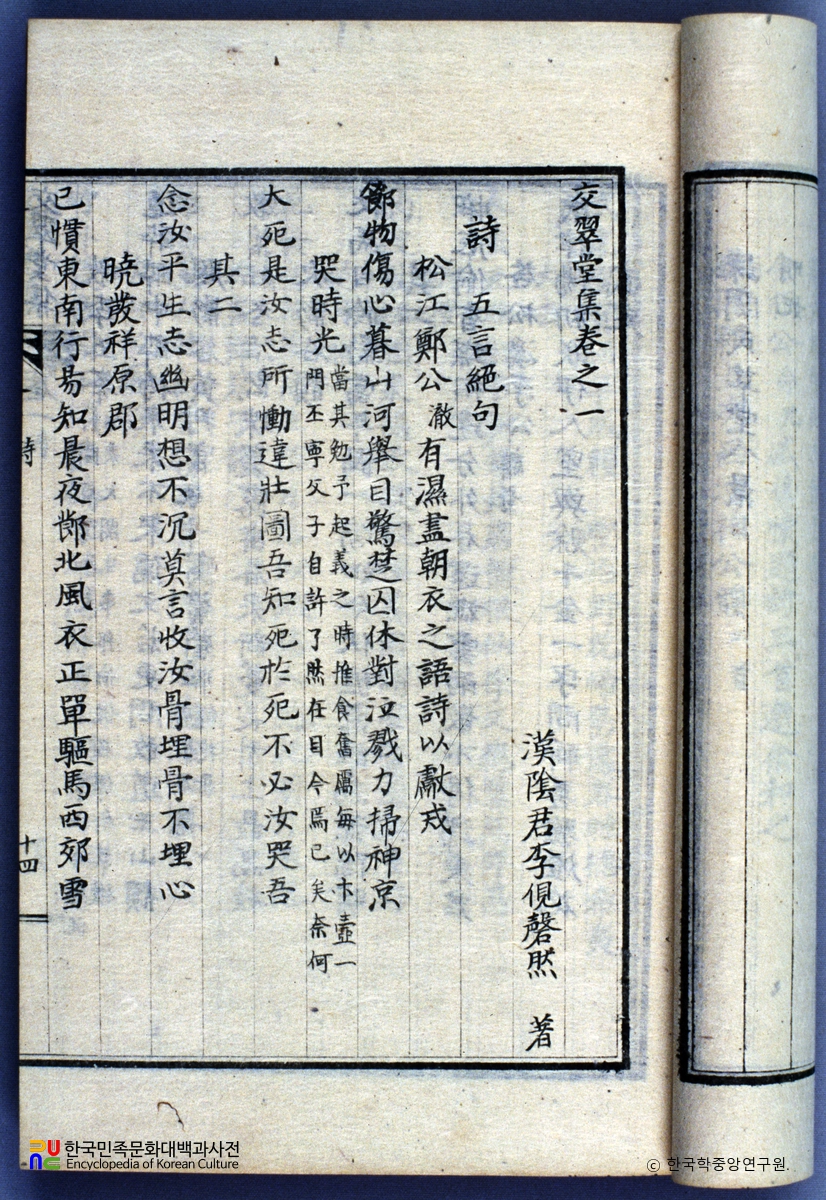 交翠堂集卷之一
漢陰君李俔磬然 著
詩 五言絕句
松江鄭公澈有濕盡朝衣之語詩以獻戎
節物傷心暮山河舉目驚楚囚休對泣戮力掃神京
哭時光 當其勉予起義之時推食奮厲每以卞壼一
門丕寧父子自許了然在目今焉已矣奈何
大死是汝志所慟違壯圖吾知死於死不必汝哭吾
其二
念汝平生志幽明想不沉莫言收汝骨埋骨不埋心
曉發祥原郡
已慣東南行易知晨夜鄧北風衣正單驅馬西郊雪
詩
十四
한국민족문화대백과사전
Encyclopedia of Korean Culture
© 한국학중앙연구원.